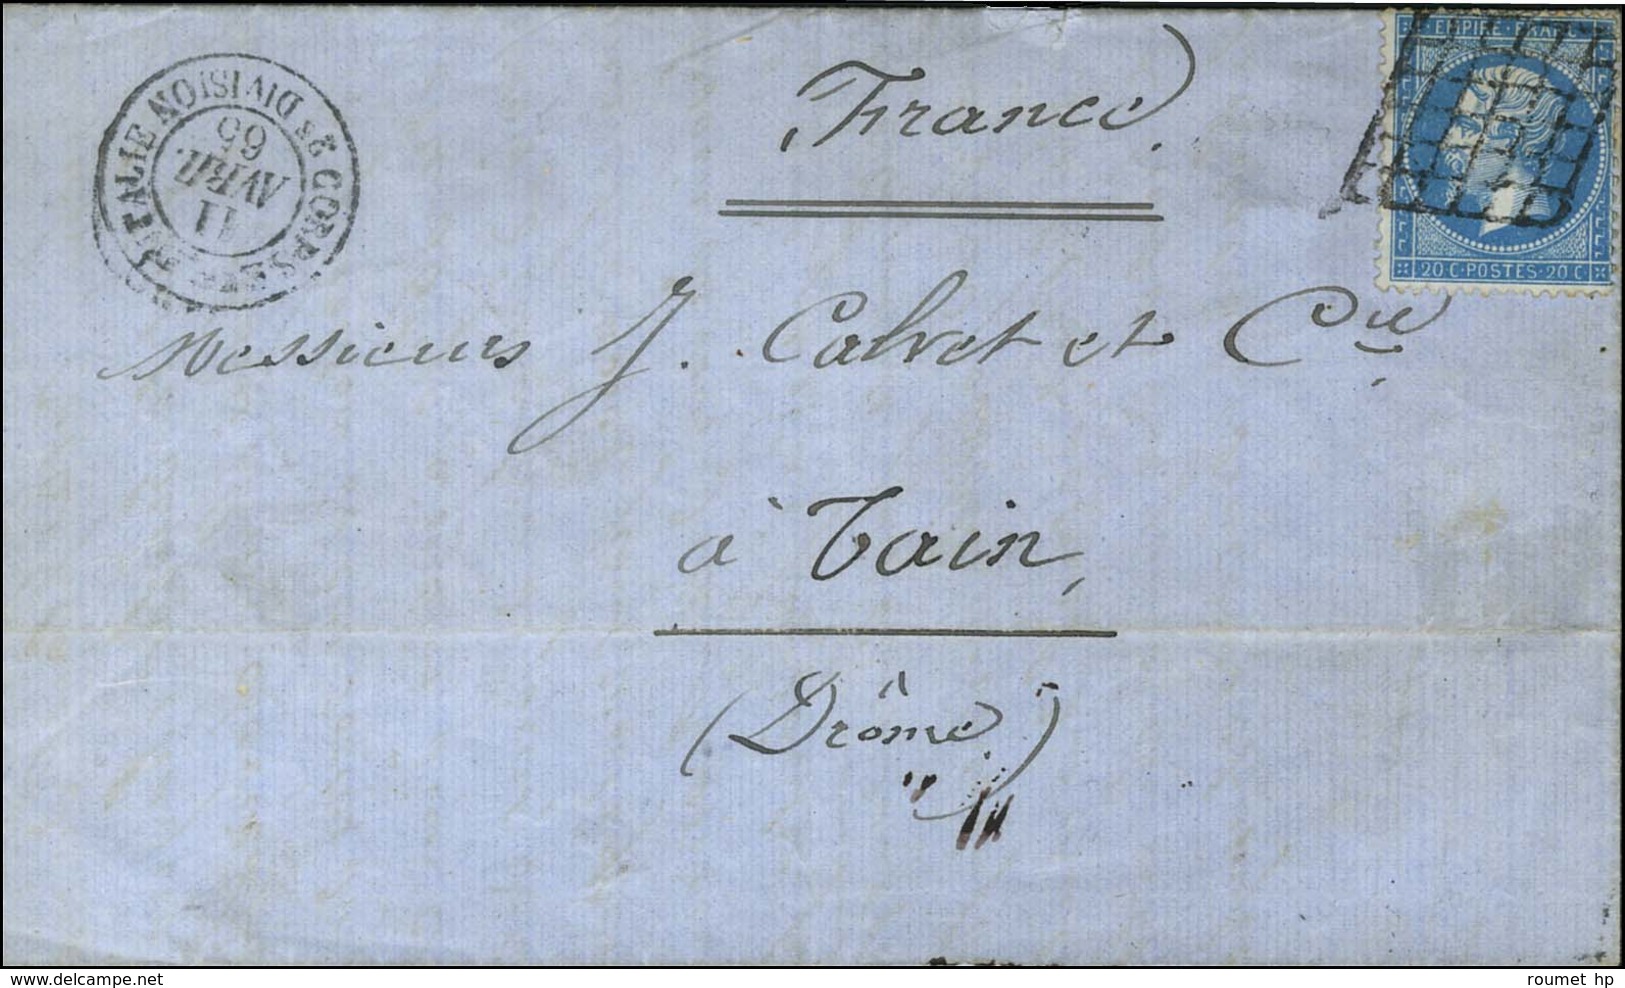 EMPIRE FRANC
20 C · POSTES · 20 C
CORPS D'ITALIE NOISION
11
AVRIL
65
France
Messieurs J. Calvet et Cie
à Tain,
(Drôme)
delcampe.net
roumet hp